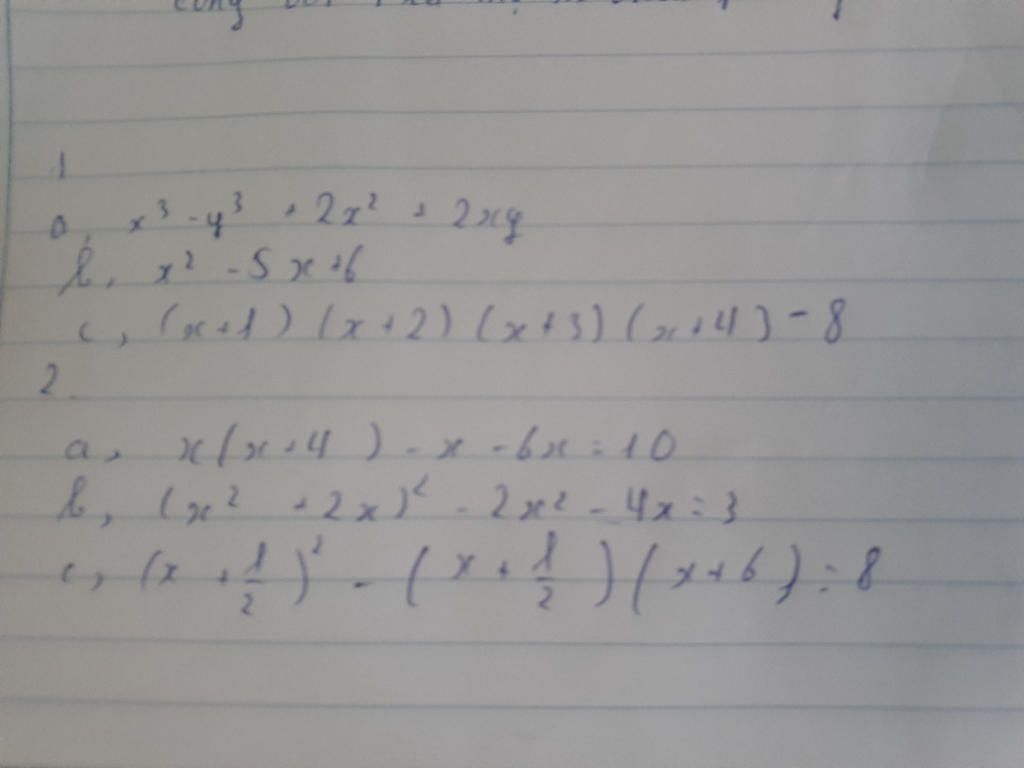 1
a, x³ - y³ + 2x² + 2xy
b, x² - 5x + 6
c, (x+1) (x+2) (x+3) (x+4) - 8
2.
a, x(x+4) - x - 6x = 10
b, (x² + 2x)² - 2x² - 4x = 3
c, (x + 1/2)² - (x + 1/2) (x+6) = 8